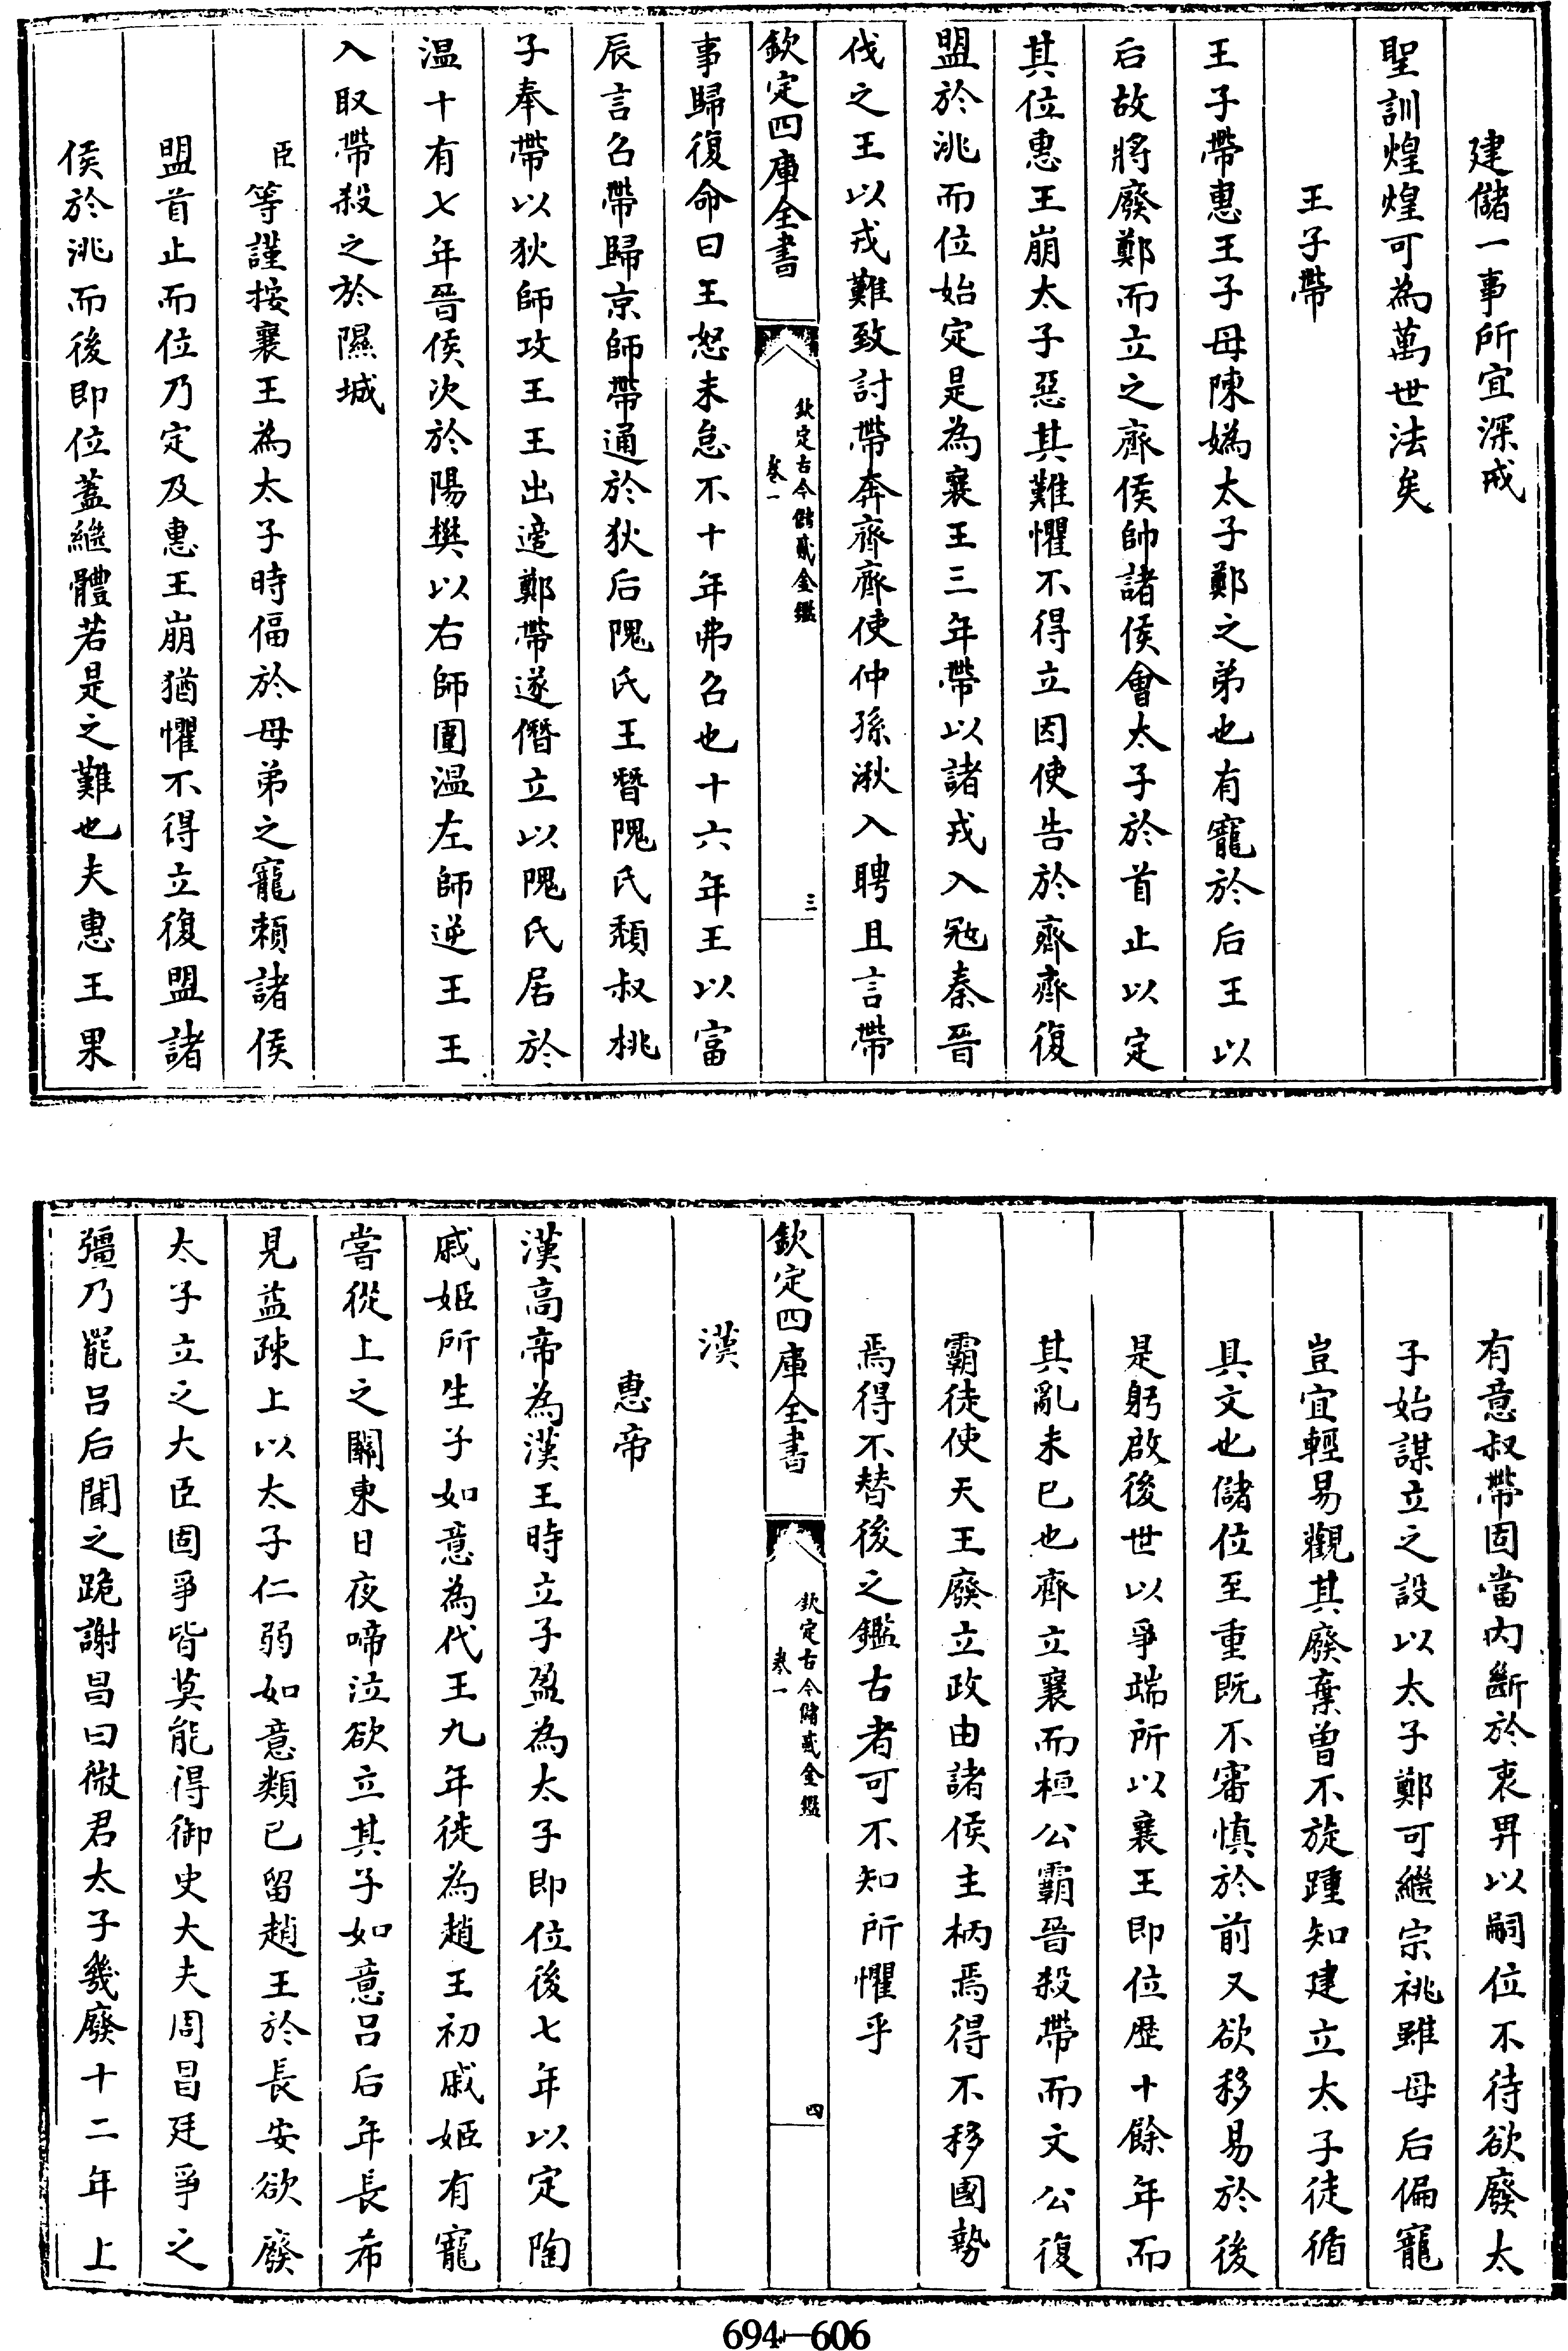 建儲一事所宜深戒
聖訓煌煌可為萬世法矣
王子帶
王子帶惠王子母陳媯太子鄭之弟也有寵於后王以
后故將廢鄭而立之齊侯帥諸侯會太子於首止以定
其位惠王崩太子惡其難懼不得立因使告於齊齊復
盟於洮而位始定是為襄王三年帶以諸戎入冦秦晉
伐之王以戎難致討帶奔齊齊使仲孫湫入聘且言帶
欽定四庫全書
欽定古今儲貳金鑑
卷一
三
事歸復命曰王怒未怠不十年弗召也十六年王以富
辰言召帶歸京師帶通於狄后隗氏王替隗氏頽叔桃
子奉帶以狄師攻王王出適鄭帶遂僭立以隗氏居於
温十有七年晉侯次於陽樊以右師圍温左師逆王王
入取帶殺之於隰城
臣等謹按襄王為太子時偪於母弟之寵頼諸侯
盟首止而位乃定及惠王崩猶懼不得立復盟諸
侯於洮而後即位葢繼體若是之難也夫惠王果
有意叔帶固當内斷於衷畀以嗣位不待欲廢太
子始謀立之設以太子鄭可繼宗祧雖母后偏寵
豈宜輕易觀其廢棄曽不旋踵知建立太子徒循
具文也儲位至重既不審慎於前又欲移易於後
是躬啟後世以爭端所以襄王即位歴十餘年而
其亂未已也齊立襄而桓公霸晉殺帶而文公復
霸徒使天王廢立政由諸侯主柄焉得不移國勢
焉得不替後之鑑古者可不知所懼乎
欽定四庫全書
欽定古今儲貳金鑑
卷一
四
漢
惠帝
漢高帝為漢王時立子盈為太子即位後七年以定陶
戚姬所生子如意為代王九年徙為趙王初戚姬有寵
嘗從上之關東日夜啼泣欲立其子如意吕后年長希
見益疎上以太子仁弱如意類已留趙王於長安欲廢
太子立之大臣固爭皆莫能得御史大夫周昌廷爭之
彊乃罷吕后聞之跪謝昌曰微君太子幾廢十二年上
694—606